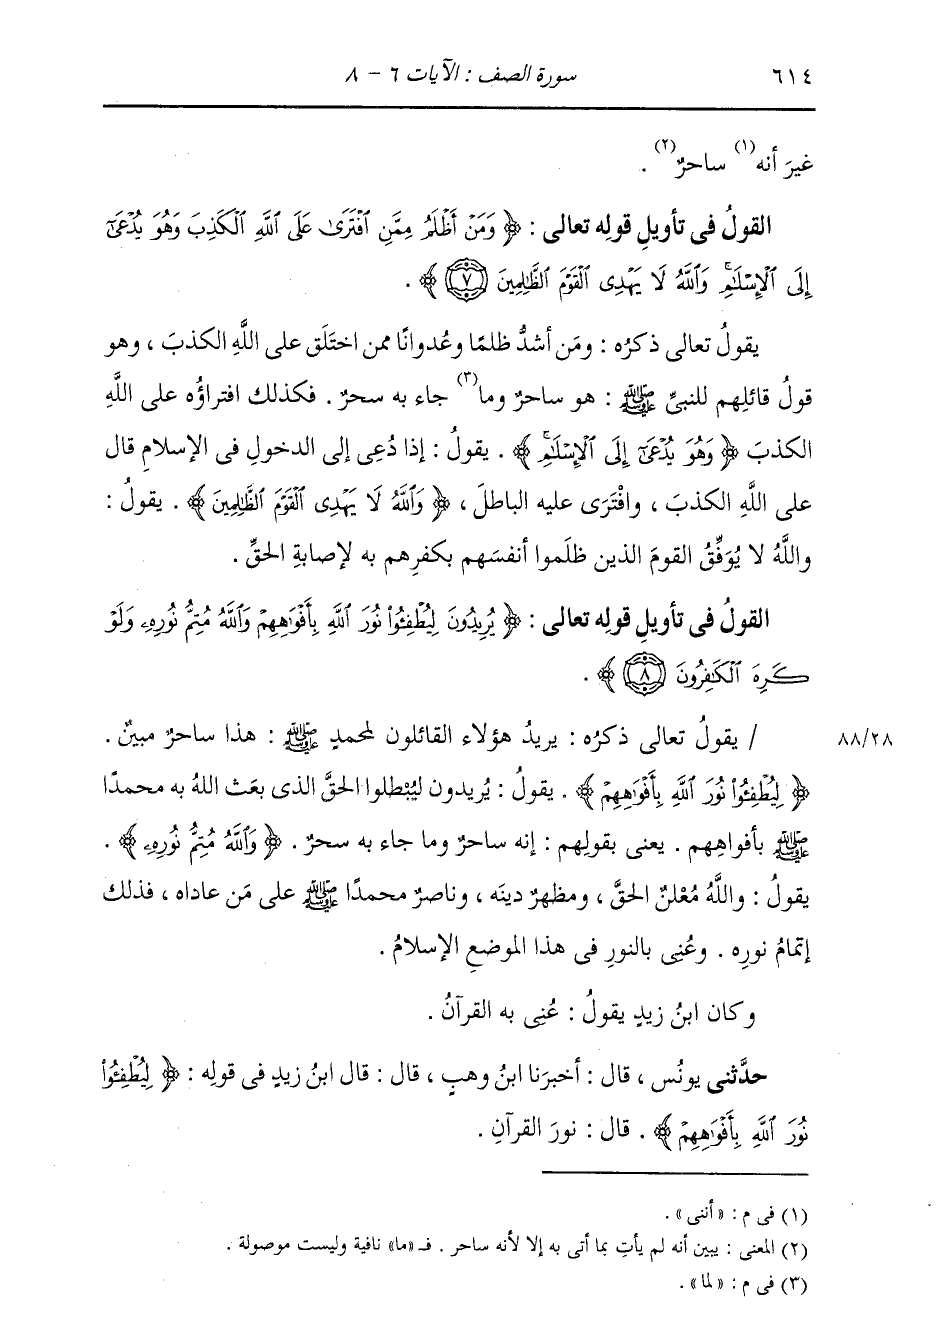 ٦١٤ سورة الصف : الآيات ٦ - ٨
غيرَ أنه(١) ساحرٌ(٢) .
القولُ فى تأويلِ قولِه تعالى : ﴿ وَمَنْ أَظْلَمُ مِمَّنِ ٱفْتَرَىٰ عَلَى ٱللَّهِ ٱلْكَذِبَ وَهُوَ يُدْعَىٰٓ
إِلَى ٱلْإِسْلَٰمِۚ وَٱللَّهُ لَا يَهْدِى ٱلْقَوْمَ ٱلظَّٰلِمِينَ ٧ ﴾ .
يقولُ تعالى ذكرُه : ومَن أشدُّ ظلمًا وعُدوانًا ممن اختَلَق على اللَّهِ الكذبَ ، وهو
قولُ قائلِهم للنبيِّ ﷺ : هو ساحرٌ وما(٣) جاء به سحرٌ . فكذلك افتراؤُه على اللَّهِ
الكذبَ ﴿ وَهُوَ يُدْعَىٰٓ إِلَى ٱلْإِسْلَٰمِۚ ﴾ . يقولُ : إذا دُعِى إلى الدخولِ فى الإسلامِ قال
على اللَّهِ الكذبَ ، وافْتَرَى عليه الباطلَ ، ﴿ وَٱللَّهُ لَا يَهْدِى ٱلْقَوْمَ ٱلظَّٰلِمِينَ ﴾ . يقولُ :
واللَّهُ لا يُوَفِّقُ القومَ الذين ظلَموا أنفسَهم بكفرِهم به لإصابةِ الحقِّ .
القولُ فى تأويلِ قولِه تعالى : ﴿ يُرِيدُونَ لِيُطْفِـُٔوا۟ نُورَ ٱللَّهِ بِأَفْوَٰهِهِمْ وَٱللَّهُ مُتِمُّ نُورِهِۦ وَلَوْ
كَرِهَ ٱلْكَٰفِرُونَ ٨ ﴾ .
/ يقولُ تعالى ذكرُه : يريدُ هؤلاء القائلون لمحمدٍ ﷺ : هذا ساحرٌ مبينٌ . ٨٨/٢٨
﴿ لِيُطْفِـُٔوا۟ نُورَ ٱللَّهِ بِأَفْوَٰهِهِمْ ﴾ . يقولُ : يُريدون ليُبْطلوا الحقَّ الذى بعَث اللهُ به محمدًا
ﷺ بأفواهِهم . يعنى بقولِهم : إنه ساحرٌ وما جاء به سحرٌ . ﴿ وَٱللَّهُ مُتِمُّ نُورِهِۦ ﴾ .
يقولُ : واللَّهُ مُعْلنٌ الحقَّ ، ومظهرٌ دينَه ، وناصرٌ محمدًا ﷺ على مَن عاداه ، فذلك
إتمامُ نورِه . وعُنِى بالنورِ فى هذا الموضعِ الإسلامُ .
وكان ابنُ زيدٍ يقولُ : عُنِى به القرآنُ .
حدَّثنى يونُس ، قال : أخبرَنا ابنُ وهبٍ ، قال : قال ابنُ زيدٍ فى قولِه : ﴿ لِيُطْفِـُٔوا۟
نُورَ ٱللَّهِ بِأَفْوَٰهِهِمْ ﴾ . قال : نورَ القرآنِ .
(١) فى م : «أننى» .
(٢) المعنى : يبين أنه لم يأتِ بما أتى به إلا لأنه ساحر . فـ «ما» نافية وليست موصولة .
(٣) فى م : «لما» .